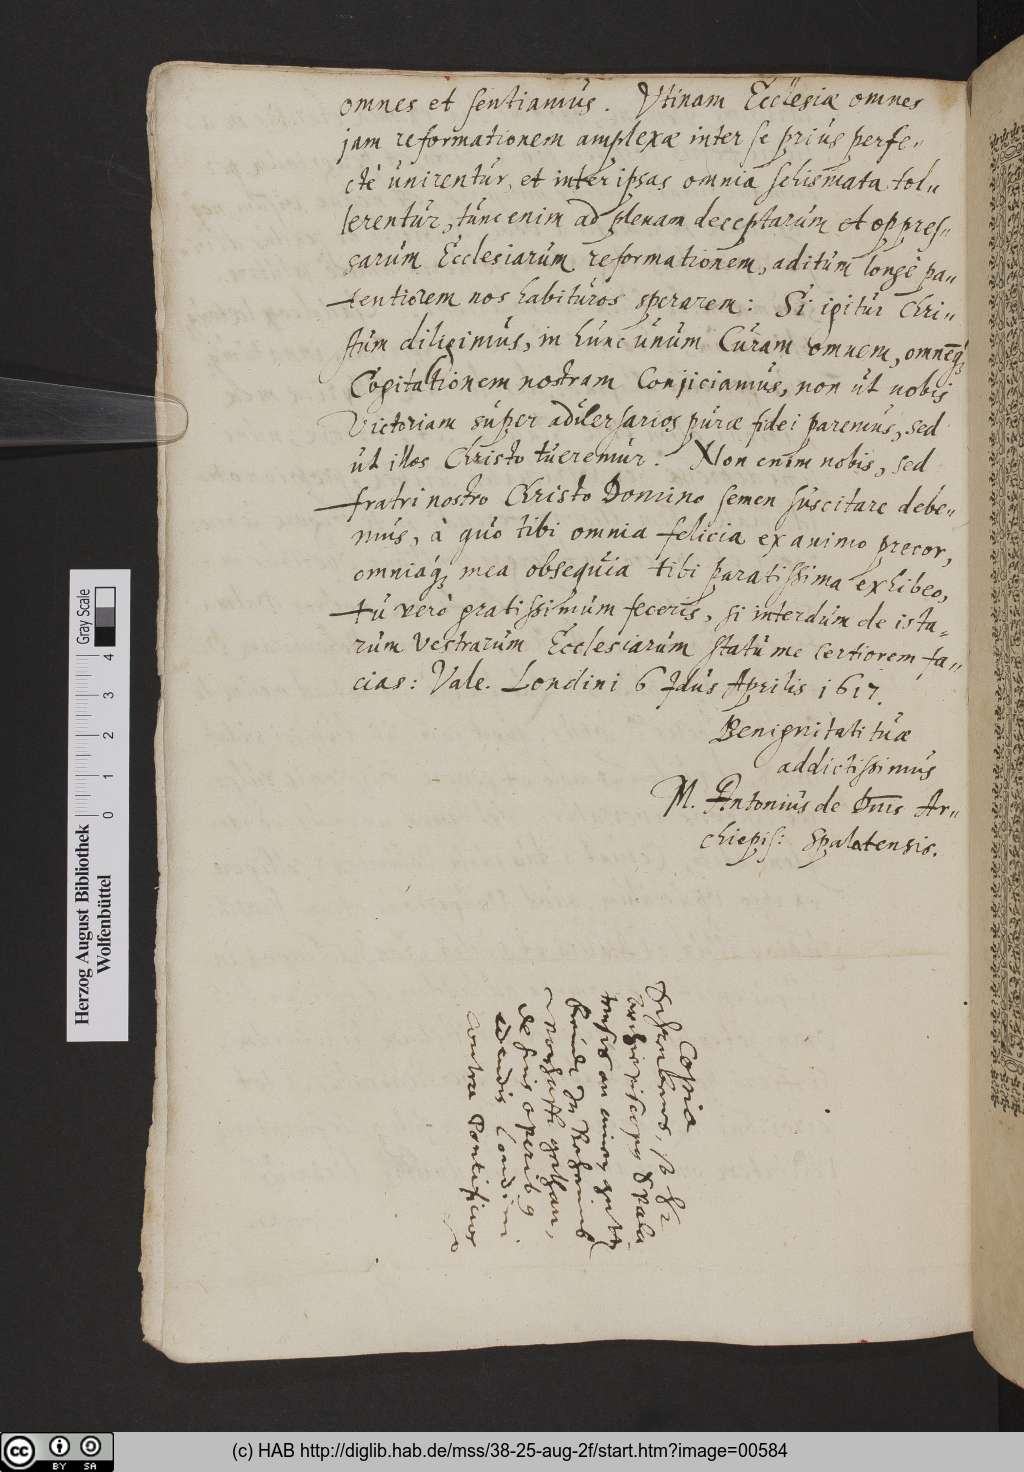 omnes et sentiamùs. Vtinam Ecclesiæ omnes
jam reformationem amplexæ inter se priùs perfe„
ctè ùnirentùr, et inter ipsas omnia schismata tol„
lerentùr, tùnc enim ad plenam deceptarùm et oppres„
sarùm Ecclesiarùm reformationem, aditùm longè pa„
tentiorem nos habitùros sperarem: Si igitùr Chri„
stùm diligimùs, in hùnc ùnùm Cùram omnem, omnēq;
Cogitationem nostram Conjiciamùs, non ùt nobis
Victoriam sùper adùersarios pùræ fidei paremùs, sed
ùt illos Christo tùeremùr. Non enim nobis, sed
fratri nostro Christo Domino semen sùscitare debe„
mùs, à qùo tibi omnia felicia ex animo precor,
omniaq; mea obseqùia tibi paratissima exhibeo,
tù verò gratissimùm feceris, si interdùm de ista„
rùm Vestrarùm Ecclesiarùm statù me certiorem fa„
cias: Vale. Londini 6 Idùs Aprilis 1617.
Benignitati tùæ
addictissimùs
M. Antoniùs de Dm̄is Ar„
chiepis: Spalatensis.
Copia
Schreibens, so
Archiepiscopus Spala
tensis an einen
freùndt
de suis operibq
edendis Londini.
contra Pontificios
Herzog August Bibliothek
Wolfenbüttel
0 1 2 3 4
Gray Scale
cc BY SA
(c) HAB http://diglib.hab.de/mss/38-25-aug-2f/start.htm?image=00584